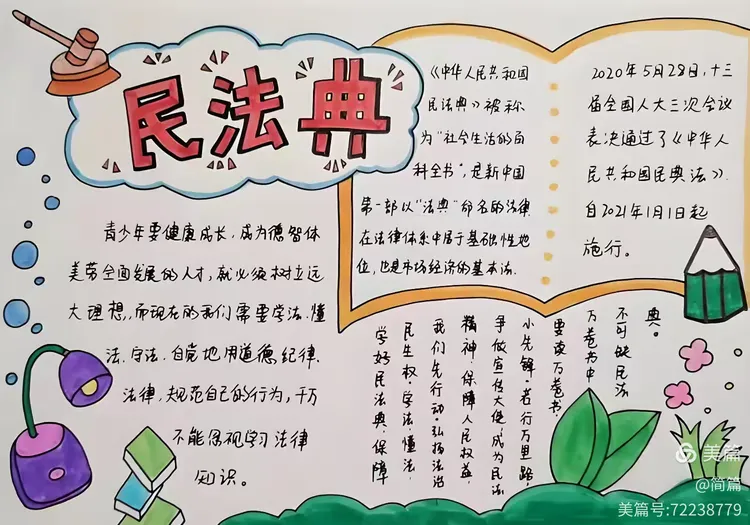 民法典
《中华人民共和国
民法典》被称
为"社会生活的百
科全书",是新中国
第一部以"法典"命名的法律
在法律体系中居于基础性地
位,也是市场经济的基本法.
2020年5月28日,十三
届全国人大三次会议
表决通过了《中华人
民共和国民典法》.
自2021年1月1日起
施行。
青少年要健康成长,成为德智体
美劳全面发展的人才,就必须树立远
大理想,而现在的我们需要学法、懂
法、守法,自觉地用道德、纪律、
法律,规范自己的行为,千万
不能忽视学习法律
知识。
学好民法典、保障
民生权·学法·懂法,
我们先行动·弘扬法治
精神·保障人民权益,
争做宣传大使成为民法
小先锋·若行万里路,
要读万卷书
万卷书中
不可缺民法
典。
美篇
@简篇
美篇号:72238779